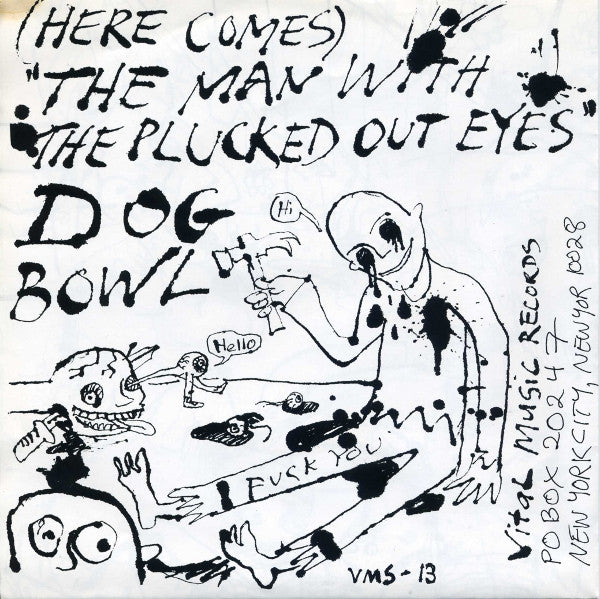 (HERE COMES)
"THE MAN WITH
THE PLUCKED OUT EYES"
DOG
BOWL
Hi
Hello
FUCK YOU
VMS-13
Vital Music Records
PO BOX 20247
NEW YORK CITY, NEW YOR 10028